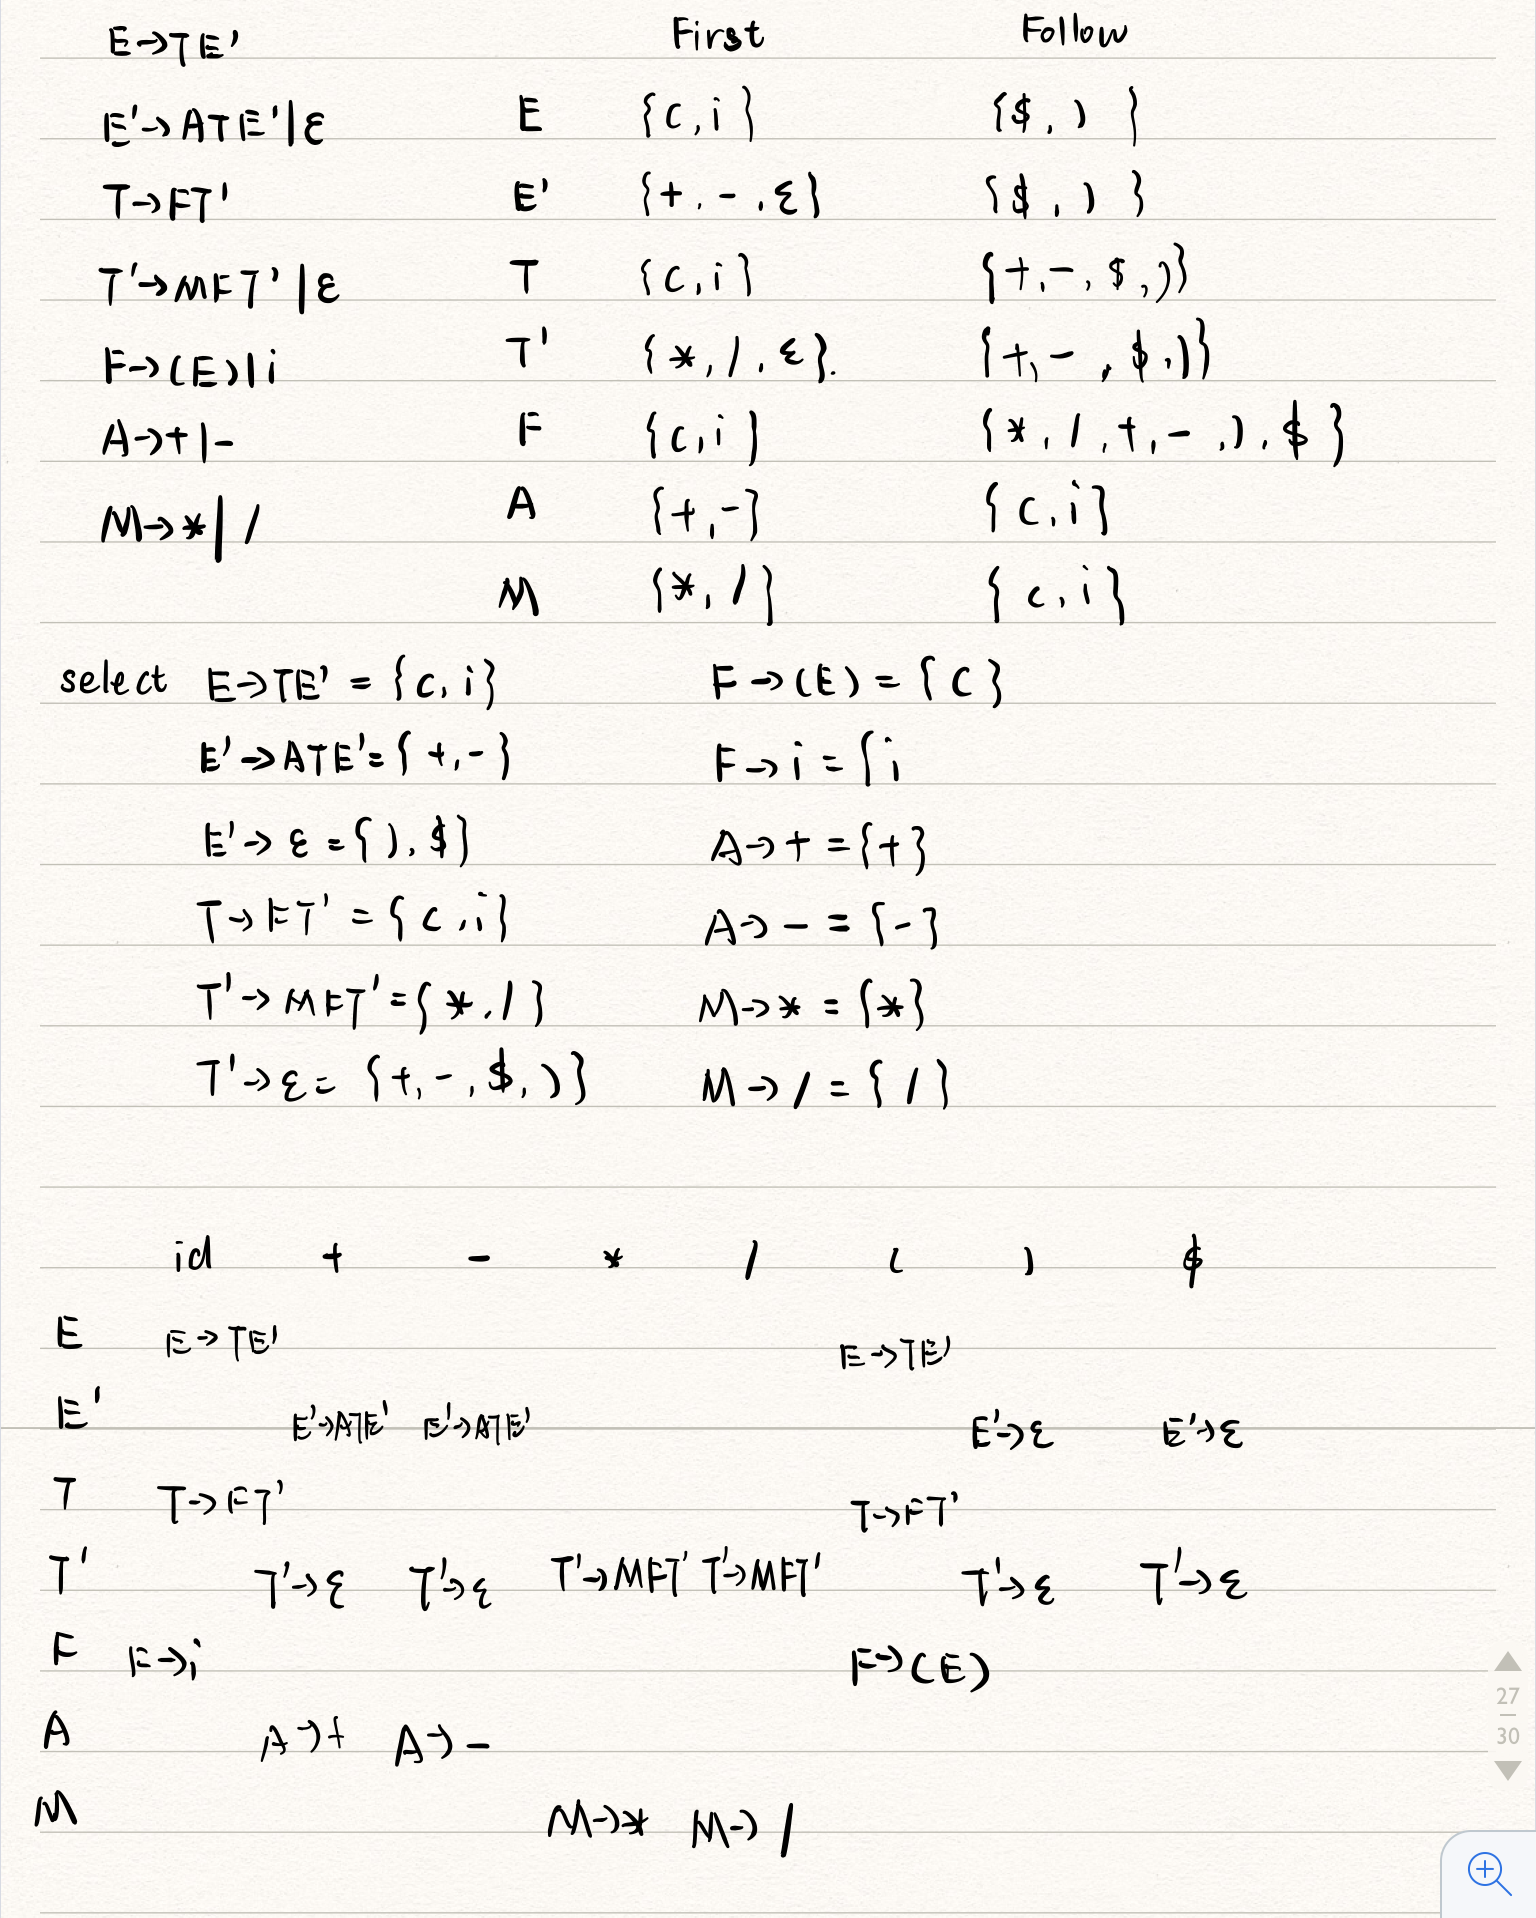 E→TE' First Follow
E'→ATE'|ε E {(,i} {$,)}
T→FT' E' {+,-,ε} {$,)}
T'→MFT'|ε T {(,i} {+,-,$,)}
F→(E)|i T' {*,/,ε}. {+,-,$,)}
A→+|- F {(,i} {*,/,+,-,),$}
M→*|/ A {+,-} {(,i}
M {*,/} {(,i}
select E→TE'={(,i} F→(E)={(}
E'→ATE'={+,-} F→i={i
E'→ε={),$} A→+={+}
T→FT'={(,i} A→-={-}
T'→MFT'={*,/} M→*={*}
T'→ε={+,-,$,)} M→/={/}
id + - * / ( ) $
E E→TE' E→TE'
E' E'→ATE' E'→ATE' E'→ε E'→ε
T T→FT' T→FT'
T' T'→ε T'→ε T'→MFT' T'→MFT' T'→ε T'→ε
F F→i F→(E)
A A→+ A→-
M M→* M→/
27
30